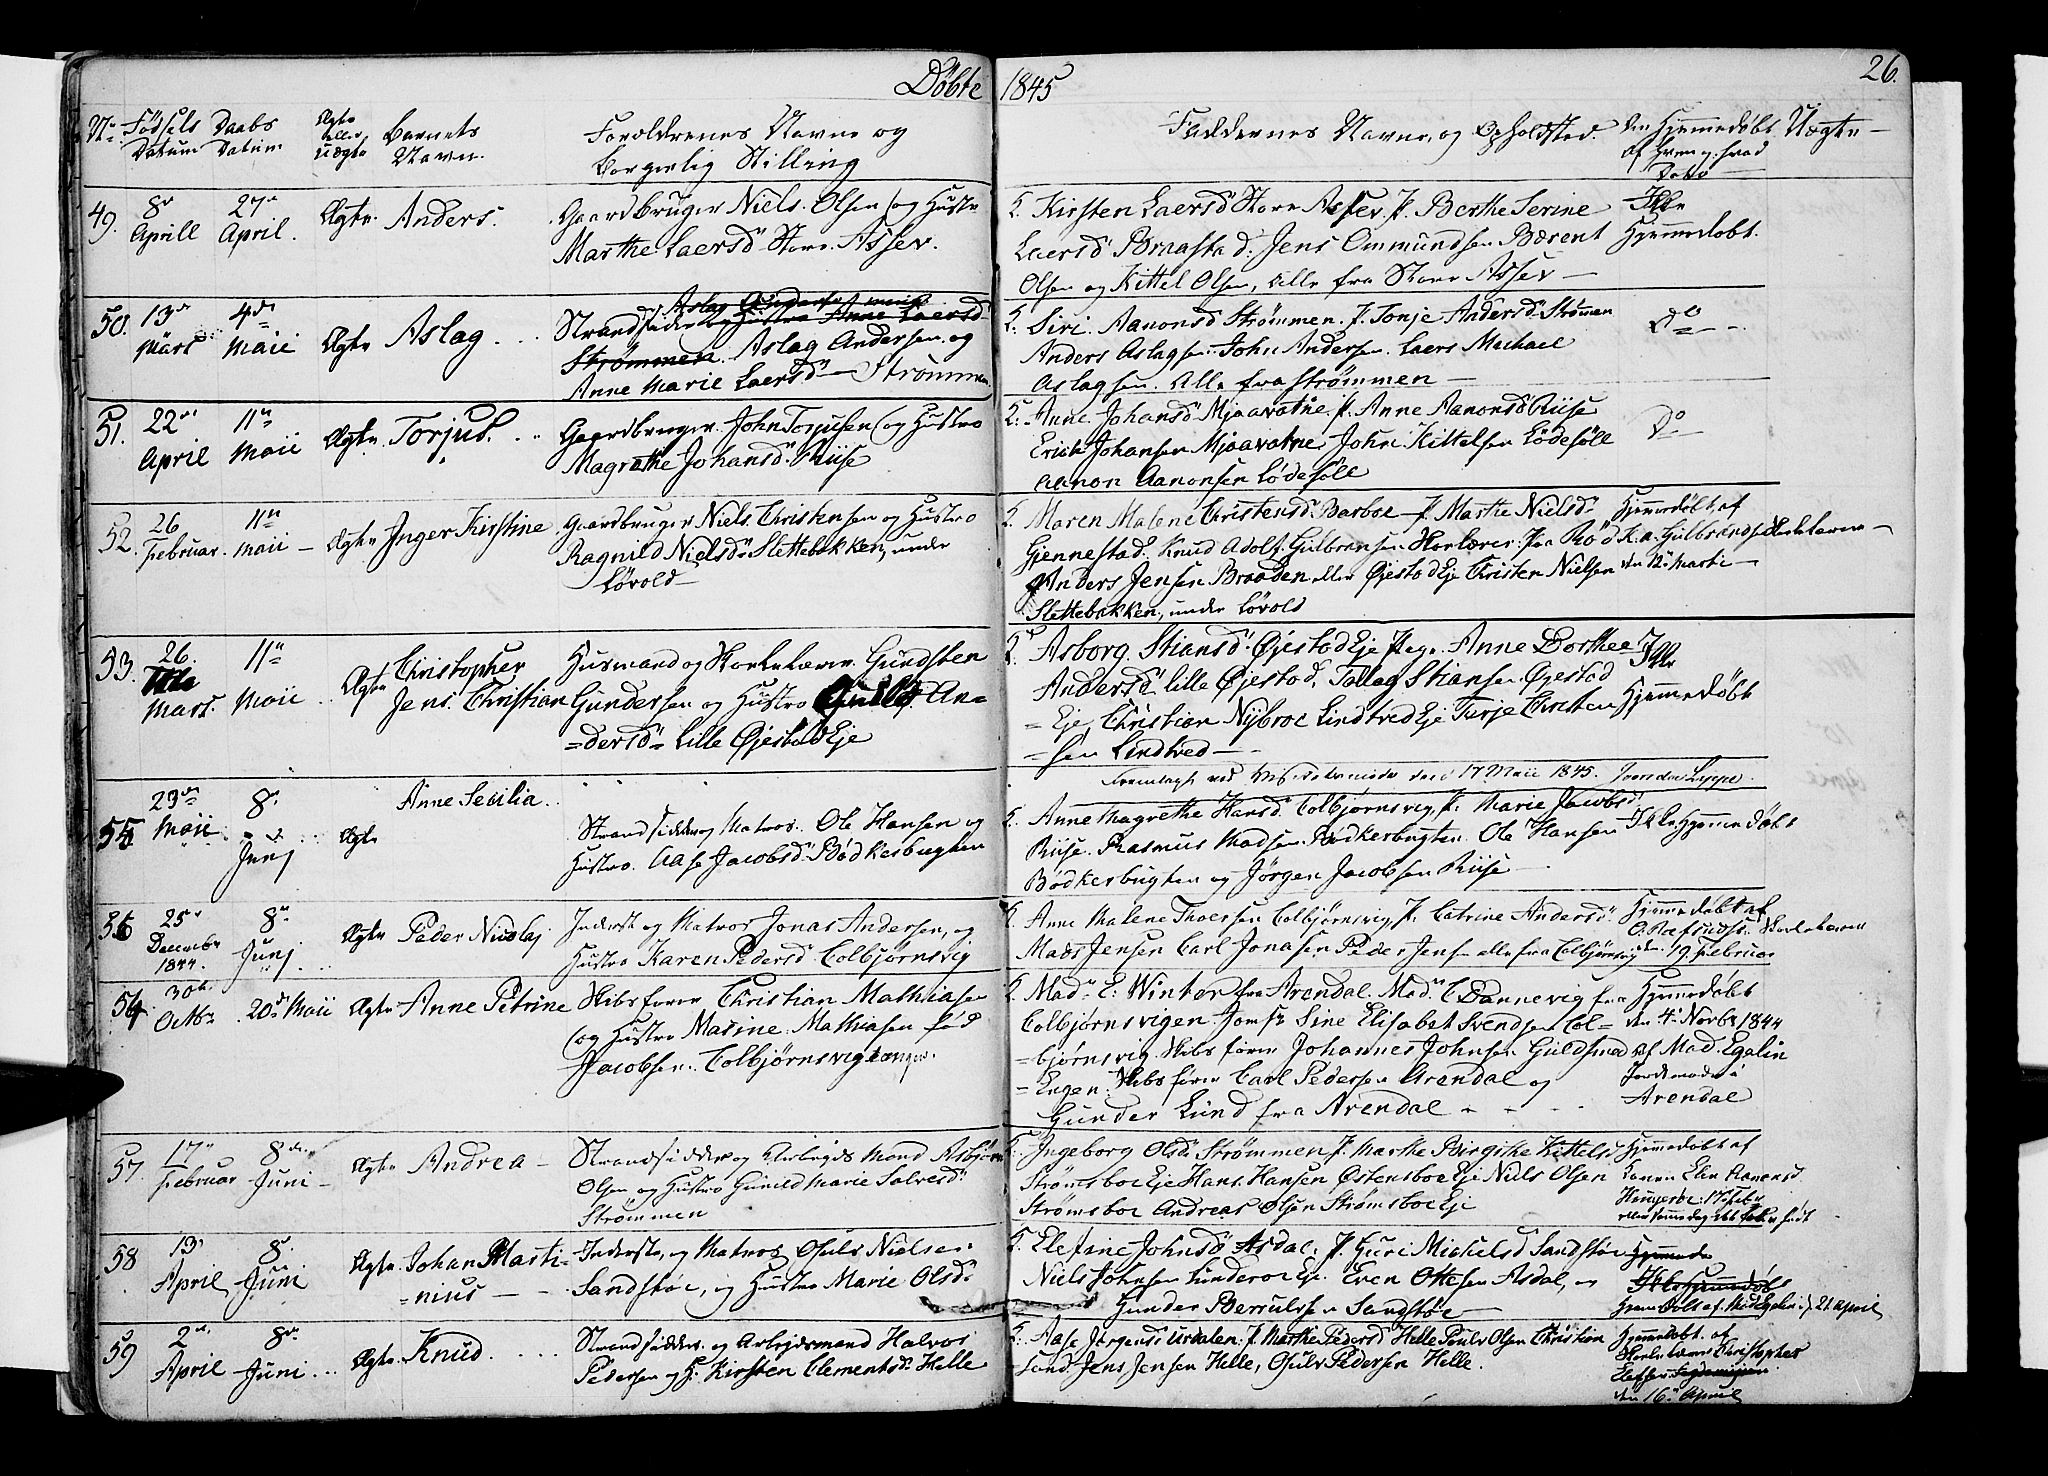 Döbte 1845
26.
No. Födsels Datum
Daabs Datum
Ægte eller uægte
Barnets Navn.
Forældrenes Navne og
Borgerlig Stilling
Faddernes Navne, og Opholdsted.
Om Hjemmedöbt af hvem og hvad Dato
Uægte
49. 8de Aprill 27de April. Ægte Anders.
Gaardbruger Niels Olsen og Hustro
Marthe Laersd. Store Assev.
K. Kirsten Laersd Store Assev. P. Berthe Serine
Laersd Braastad. Jens Ommundsen Bærent
Olsen og Kittel Olsen, alle fra Store Assev
Ikke
Hjemmedöbt.
50. 13de Mart 4de Maii Ægte Aslag
Strandsidder og Hustro Anne Laersd
Strömmen. Aslag Andersen og
Anne Marie Laersd Strömmen.
K. Siri Aanonsd Strömmen. P. Tonje Andersd Strömen
Anders Aslagsen. John Andersen. Laers Michael
Aslagsen. Alle fra Strömmen
Do
51. 22de April 11te Maii Ægte Torjus.
Gaardbruger John Torjusen og Hustro
Magrethe Johansd. Riise
K. Anne Johansd Mjaavatne P. Anne Aanonsd Riise
Erich Johansen Mjaavatne, John Kittelsen Lödesöll
Aanon Aanonsen Lödesöll
Do
52. 26 Februar. 11te Maii Ægte Inger Kirstine
Gaardbruger Niels Christensen og Hustro
Ragnild Nielsd. Slettebakken, under
Lövold
K. Maren Malene Christensd. Barboe P. Marthe Nielsd.
Gjennestad. Knud Adolf Gulbransen
Anders Jensen Braaden eller Øjestad Eje Christen Nielsen
Slettebakken, under Lövold
Hjemmedöbt af
K. A. Gulbrandsen Skolelærer
den 12te Marti
53. 26. Mart. 11te Maii Ægte Christopher
Jens Christian
Husmand og Skolelærer Gundsten
Gundersen og Hustro Gunild An=
=dersd= Lille Øjestad Eje
K. Asborg Stiansd. Øjestad Eje Pige Anne Dorthea
Andersd. Lille Øjestad, Tallag Stiansen Øjestad
=Eje, Christian Nybroe Lindtved Eje Terje Christen
=sen Lindtved
Ikke
Hjemmedöbt
Fremlagt ved Visitatsmöde den 17 Maii 1845.
55 23de Maii 8de Junj Ægte Anne Secilia
Strandsidder og Matros Ole Hansen og
Hustro Aase Jacobsd. Bödkerbugten
K. Anne Magrethe Hansd Colbjörnsvig, P. Marie Jacobsd
Riise. Rasmus Madsen Bödkerbugten. Ole Hansen
Bödkerbugten og Jörgen Jacobsen Riise
Ikke Hjemmedöbt
56 25de December 1844. 8de Junj Ægte Peder Nicolaj
Inderst og Matros Jonas Andersen, og
Hustro Karen Pedersd Colbjörnsvig
K. Anne Malene Thoersen Colbjörnsvig, P. Catrine Andersd
Mads Jensen Carl Jonasen Peder Jensen alle fra Colbjörnsvig
Hjemmedöbt af
O. Refsnæs Skolelærer
den 19 Februar
54 30te Octbr 20de Maii Ægte Anne Petrine
Skibsförer Christian Mathiasen
og Hustro Masine Mathiasen föd
Jacobsen. Colbjörnsvig
K. Mad. E. Winter fra Arendal. Mad. C Dannevig fra
Colbjörnsvigen. Jomfr. Sine Elisabet Svendsen Col=
=björnsvig. Skibsförer Johannes Johnsen Guldsmed
=Engen. Skibsförer Carl Pedersen Arendal og
Gunder Lund fra Arendal
Hjemmedöbt
den 4de Novbr 1844
af Mad. Egelin
Jordemoder i
Arendal
57. 17de Februar 8de Juni Ægte Andrea
Strandsidder og Arbeyds Mand Asbjörn
Olsen og Hustro Gunild Marie Salvesd.
Strömmen
K. Ingeborg Olsd. Strömmen P. Marthe Birgithe Kittelsd
Strömsboe Eje Hans Hansen Østensboe Eje Niels Olsen
Strömsboe Andreas Olsen Strömsboe Eje
Hjemmedöbt af
Konen Elen Aanonsd
17de Febr
58 13de April 8de Juni Ægte Johan Marti=
=nius
Inderste og Matros Osuld Nielsen
Sandstöe, og Hustro Marie Olsd.
K. Elefine Johnsd Asdal. P. Guri Michelsd Sandstöe
Niels Johnsen Sunderoe Eje. Even Ottesen Asdal, og
Gunder Berrulvsen Sandstöe
Hjemmedöbt af Mad Egelin d. 21 April
59 2de April 8de Juni Ægte Knud.
Strandsidder og Arbejdsmand Halvor
Pedersen og H. Kirsten Clementsd. Helle
K. Aase Jörgensd Urdalen. P. Marthe Pedersd Helle Poule Olsen Christian
=sand. Jens Jensen Helle, Osuld Pedersen Helle.
Hjemmedöbt af
Skolelærer Christopher
den 16de April